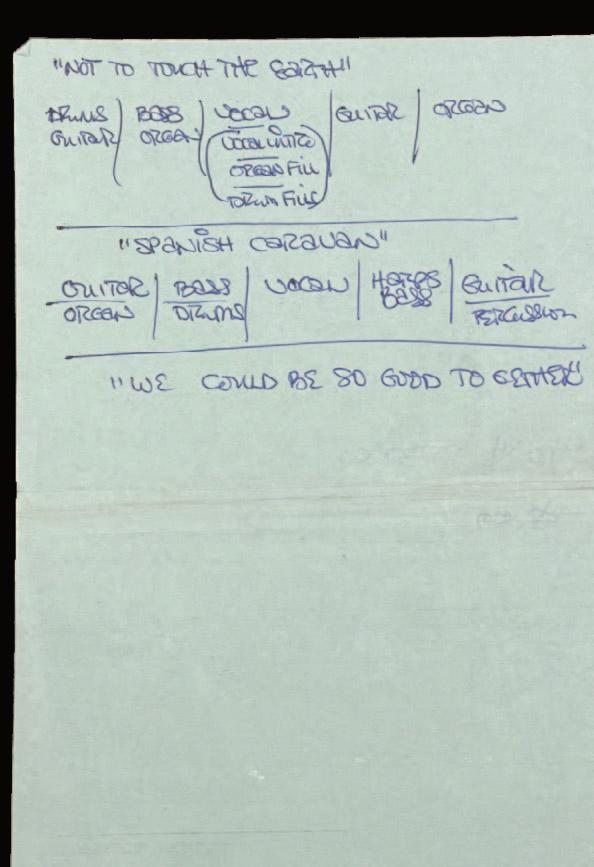 "NOT TO TOUCH THE EARTH"
DRUMS BASS VOCAL GUITAR ORGAN
GUITAR ORGAN VOCAL
ORGAN FILL
DRUM FILLS
"SPANISH CARAVAN"
GUITAR BASS VOCAL HARPS GUITAR
ORGAN DRUMS BASS PERCUSSION
"WE COULD BE SO GOOD TO GETHER"